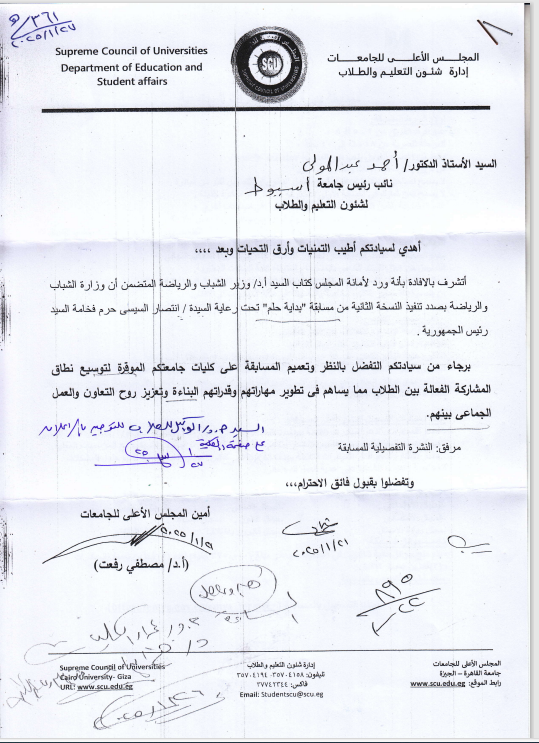 ٣٦١
٢٠٢٥/١/٢٧
Supreme Council of Universities
Department of Education and
Student affairs
SCU
المجلس الأعلى للجامعـــــات
إدارة شئون التعليم والطلاب
السيد الأستاذ الدكتور/ أحمد عبد المولى
نائب رئيس جامعة أسيوط
لشئون التعليم والطلاب
أهدي لسيادتكم أطيب التمنيات وأرق التحيات وبعد ,,,,
أتشرف بالافادة بأنة ورد لأمانة المجلس كتاب السيد أ.د/ وزير الشباب والرياضة المتضمن أن وزارة الشباب
والرياضة بصدد تنفيذ النسخة الثانية من مسابقة "بداية حلم" تحت رعاية السيدة / انتصار السيسى حرم فخامة السيد
رئيس الجمهورية .
برجاء من سيادتكم التفضل بالنظر وتعميم المسابقة على كليات جامعتكم الموقرة لتوسيع نطاق
المشاركة الفعالة بين الطلاب مما يساهم فى تطوير مهاراتهم وقدراتهم البناءة وتعزيز روح التعاون والعمل
الجماعى بينهم.
مرفق: النشرة التفصيلية للمسابقة
وتفضلوا بقبول فائق الاحترام,,,
أمين المجلس الأعلى للجامعات
(أ.د/ مصطفي رفعت)
٢٠٢٥/١/٢١
٨٩٥
Supreme Council of Universities
Cairo University- Giza
URL: www.scu.edu.eg
إدارة شئون التعليم والطلاب
تليفون: ٣٥٧٠٤١٥٨ ٣٥٧٠٤١٩٤
فاكس: ٣٧٧٤٢٣٤٤
Email: Studentscu@scu.eg
المجلس الأعلى للجامعات
جامعة القاهرة – الجيزة
رابط الموقع: www.scu.edu.eg